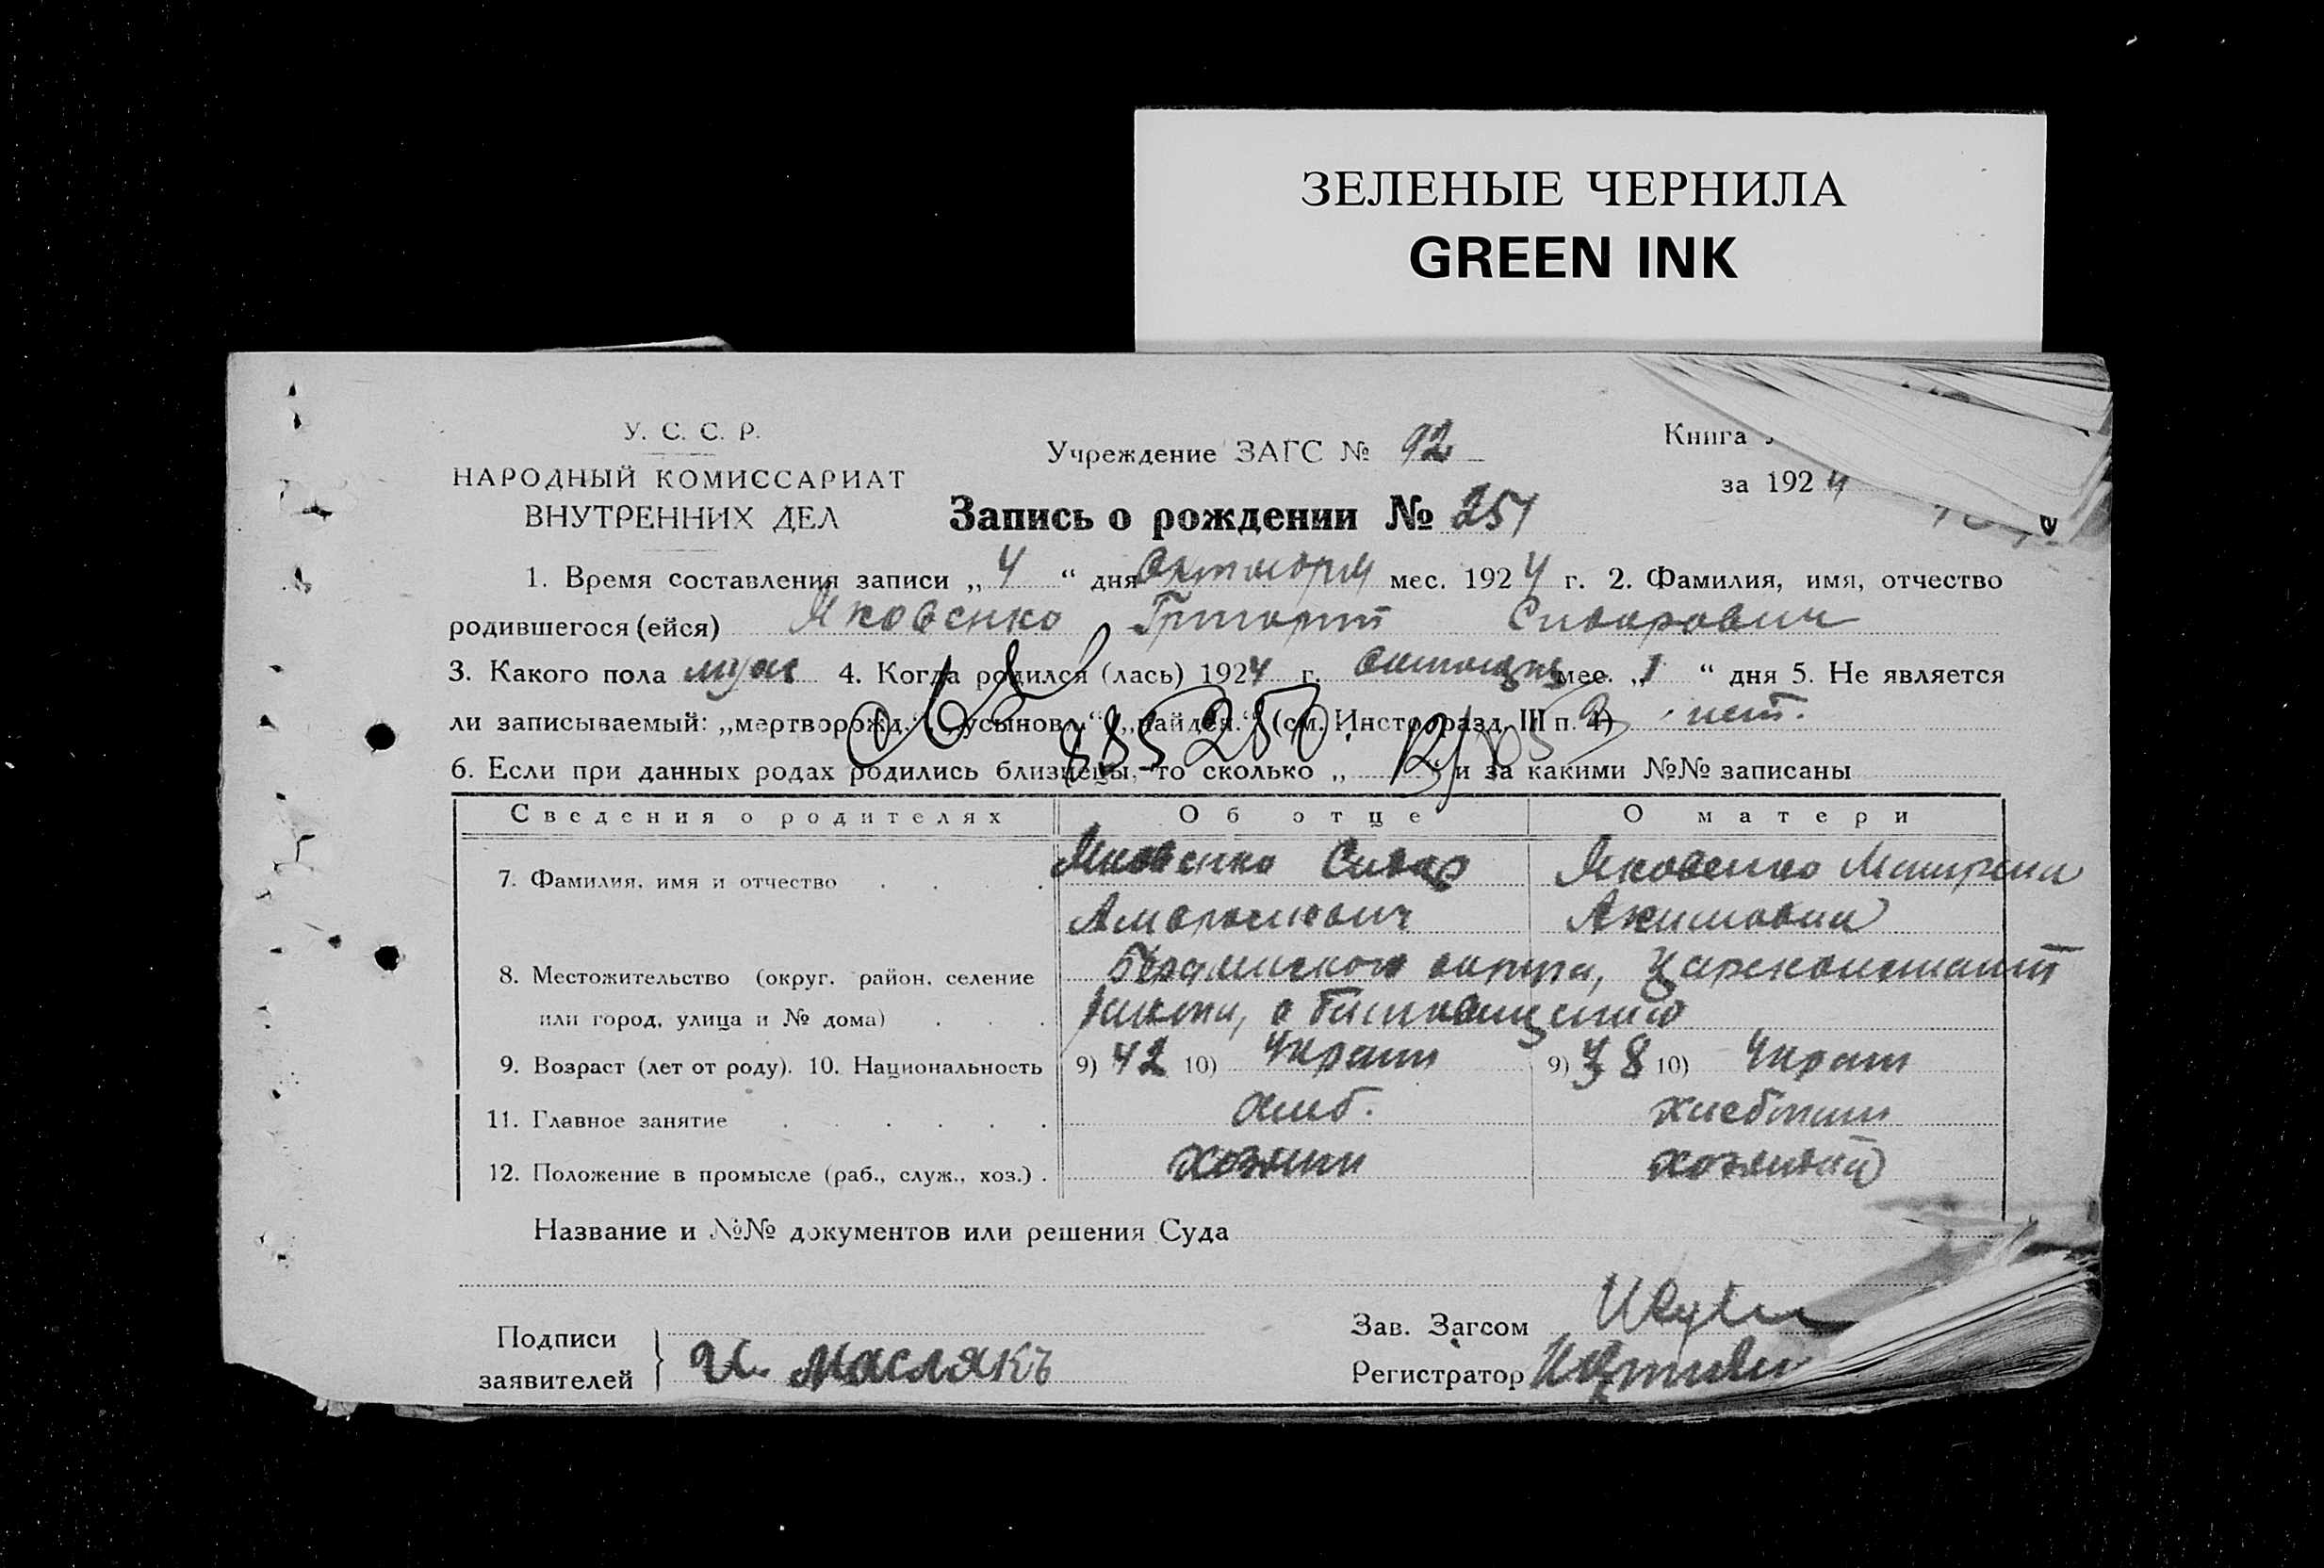 ЗЕЛЕНЫЕ ЧЕРНИЛА
GREEN INK
У. С. С. Р.
НАРОДНЫЙ КОМИССАРИАТ
ВНУТРЕННИХ ДЕЛ
Учреждение ЗАГС № 92
Книга
за 1924
Запись о рождении № 251
1. Время составления записи „ 4 “ дня Октября мес. 1924 г. 2. Фамилия, имя, отчество
родившегося (ейся) Яковенко Григорий Сидорович
3. Какого пола муж 4. Когда родился (лась) 1924 г. октября мес. „ 1 “ дня 5. Не является
ли записываемый: „мертворожд.“ „усыновл“ „найден.“ (см. Инстр. разд. III п. 4) нет.
6. Если при данных родах родились близнецы, то сколько „ “ и за какими №№ записаны
Сведения о родителях Об отце О матери
7. Фамилия, имя и отчество . . . . Яковенко Сидор Яковенко Матрена
Акимовна
8. Местожительство (округ, район, селение Бердянского округа, Цареконстант
или город, улица и № дома) . . .
9. Возраст (лет от роду). 10. Национальность 9) 42 10) Украин 9) 38 10) Украин
11. Главное занятие . . . . . . хлеб. хлебопаш
12. Положение в промысле (раб., служ., хоз.) . хозяин
Название и №№ документов или решения Суда
Подписи
заявителей } И. Маслякъ
Зав. Загсом
Регистратор